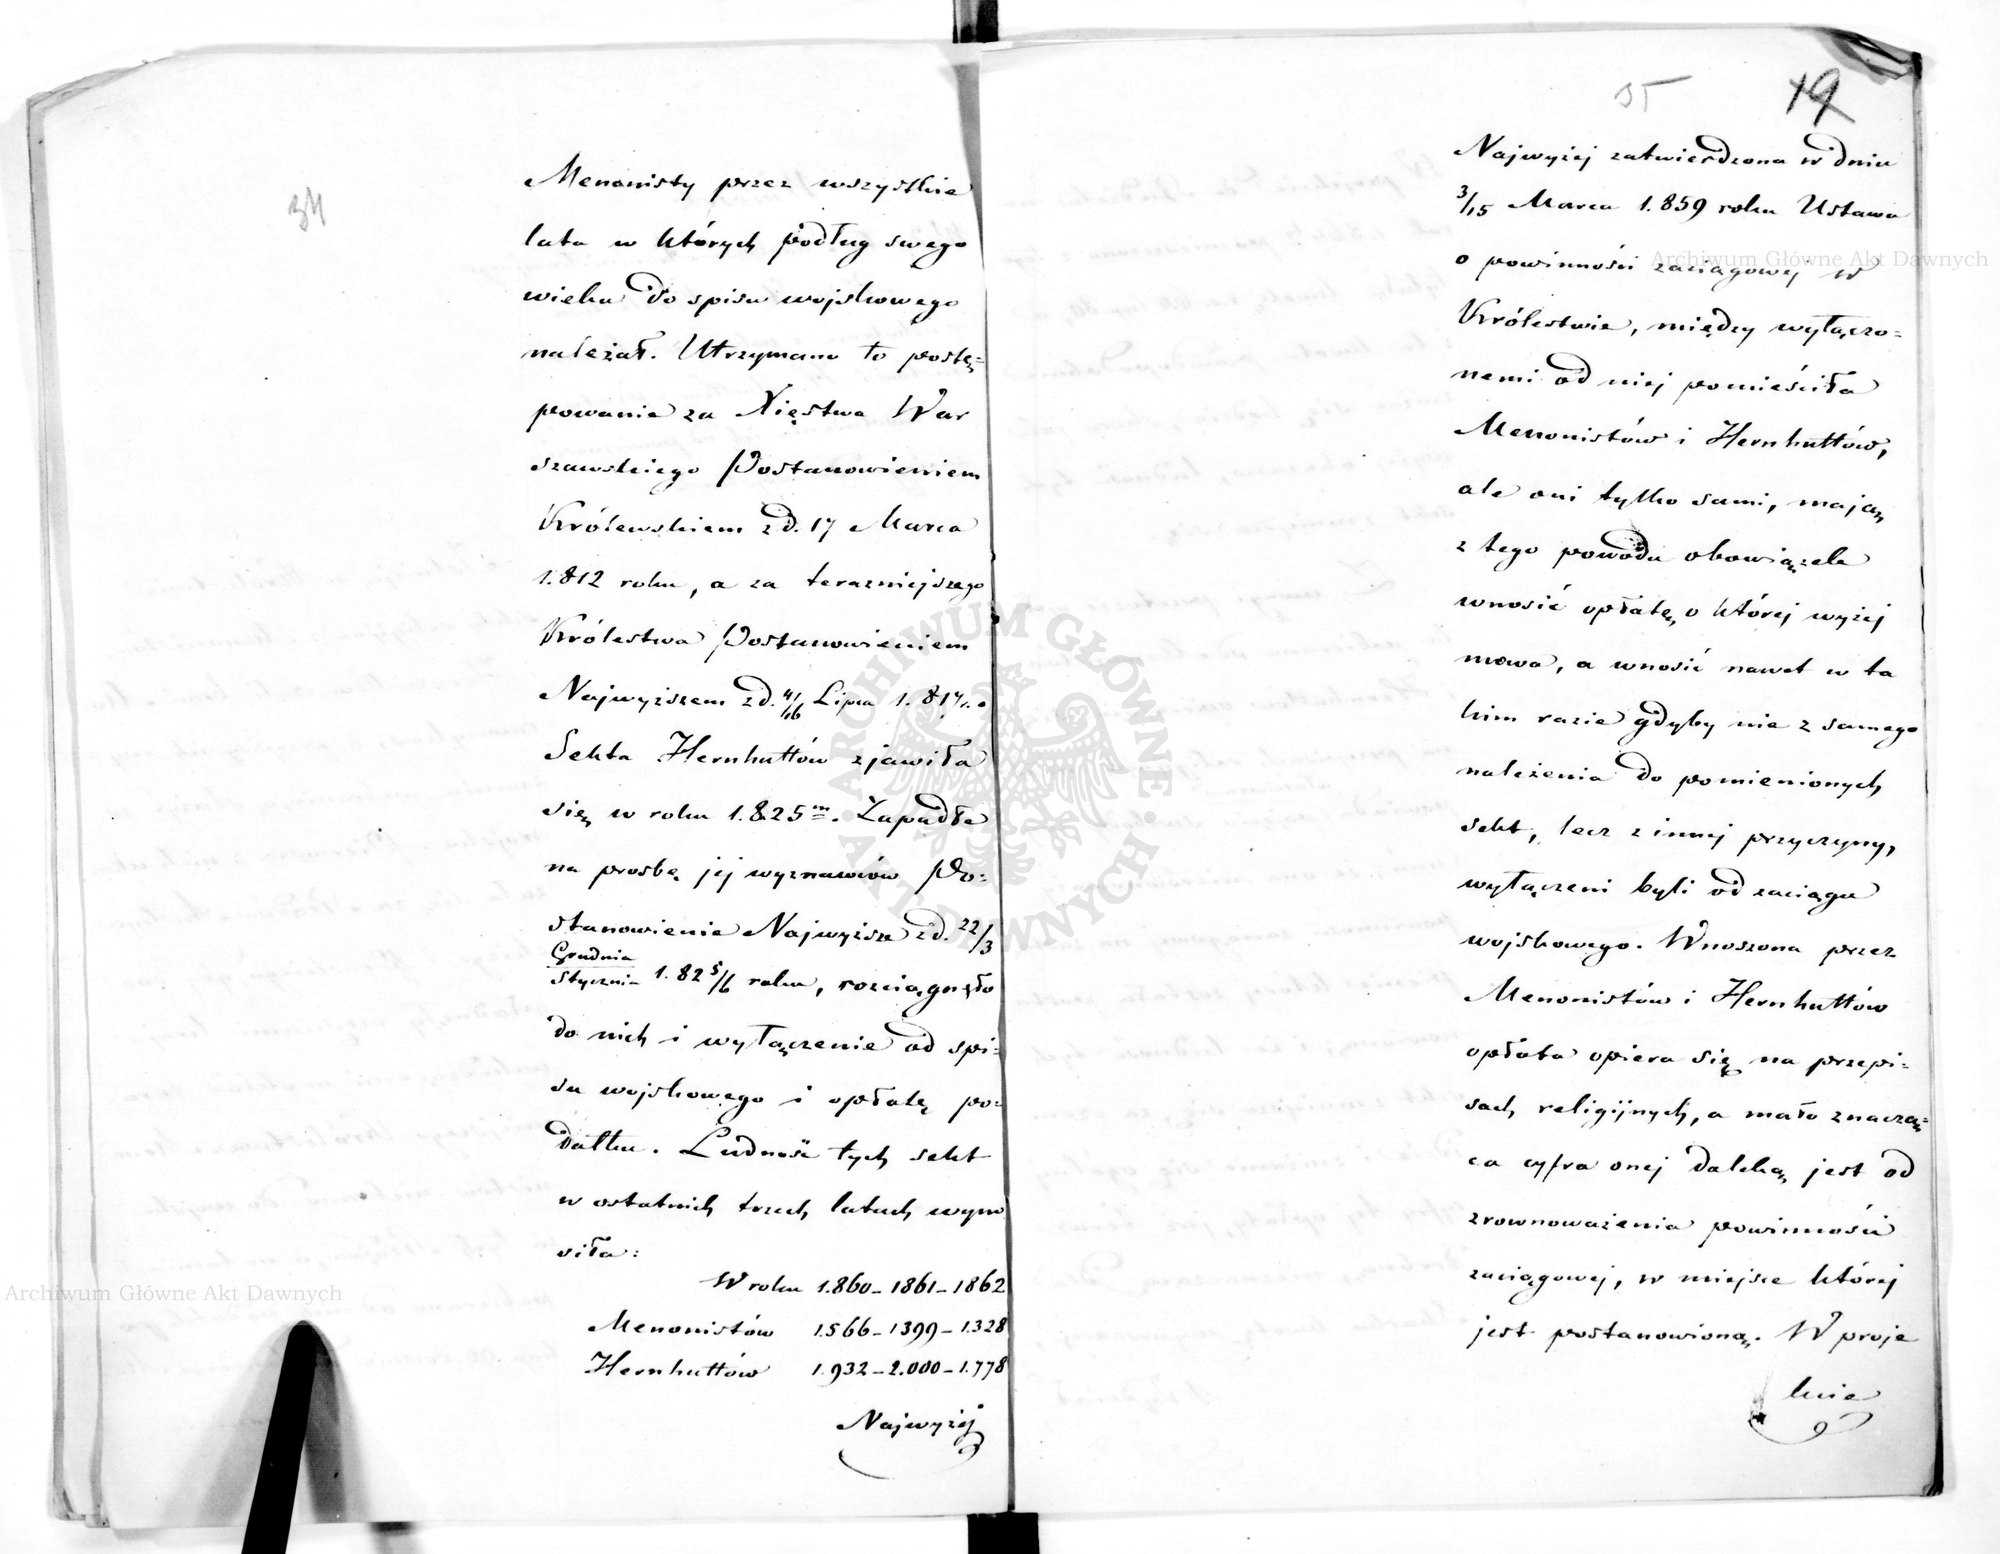 34
Menonisty przez wszystkie
lata w których podług swego
wieku do spisu wojskowego
należał. Utrzymano to postę=
powanie za Xięstwa War
szawskiego Postanowieniem
Królewskiem z d. 17 Marca
1.812 roku, a za terazniejszego
Królestwa Postanowieniem
Najwyższem z d. 4/16 Lipca 1.817 r.
Sekta Hernhuttów zjawiła
się w roku 1.825m. Zapadłe
na prosbę jej wyznawców Po=
stanowienie Najwyższe z d. 22/3
Grudnia
Stycznia 1.82 5/6 roku, rozciągnęło
do nich i wyłączenie od spi=
su wojskowego i opłatę po=
datku. Ludność tych sekt
w ostatnich trzech latach wyno
siła:
W roku 1.860 - 1861 - 1862
Menonistów 1.566 - 1399 - 1.328
Hernhuttów 1.932 - 2.000 - 1.778
Najwyżej
35
19
Najwyżej zatwierdzona w dniu
3/15 Marca 1.859 roku Ustawa
o powinności zaciągowej w
Królestwie, między wyłączo=
nemi od niej pomieściła
Menonistów i Hernhuttów,
ale oni tylko sami, mają
z tego powodu obowiązek
wnosić opłatę, o której wyżej
mowa, a wnosić nawet w ta
kim razie gdyby nie z samego
należenia do pomienionych
sekt, lecz z innej przyczyny,
wyłączeni byli od zaciągu
wojskowego. Wnoszona przez
Menonistów i Hernhuttów
opłata opiera się na przepi=
sach religijnych, a mało znaczą=
ca cyfra onej daleką jest od
zrownoważenia powinności
zaciągowej, w miejsce której
jest postanowioną. W proje
kcie
Archiwum Główne Akt Dawnych
Archiwum Główne Akt Dawnych
ARCHIWUM GŁÓWNE AKT DAWNYCH